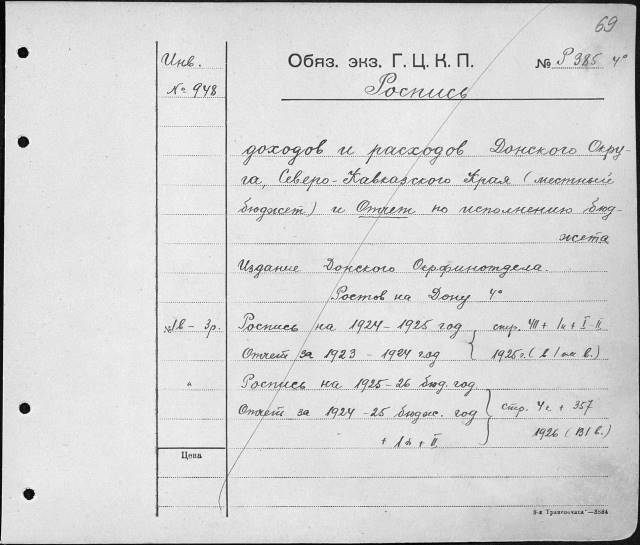 69
Инв.
№ 948
Обяз. экз. Г. Ц. К. П. № Р 385 4°
Роспись
доходов и расходов Донского Окру-
га, Северо-Кавказского Края (местный
бюджет) и Отчет по исполнению бюд-
жета
Издание Донского Окрфинотдела.
Ростов на Дону 4°
Роспись на 1924-1925 год
Отчет за 1923-1924 год
1925 г.
Роспись на 1925-26 бюд. год
Отчет за 1924-25 бюдж. год стр. 4 + 357
1926
Цена